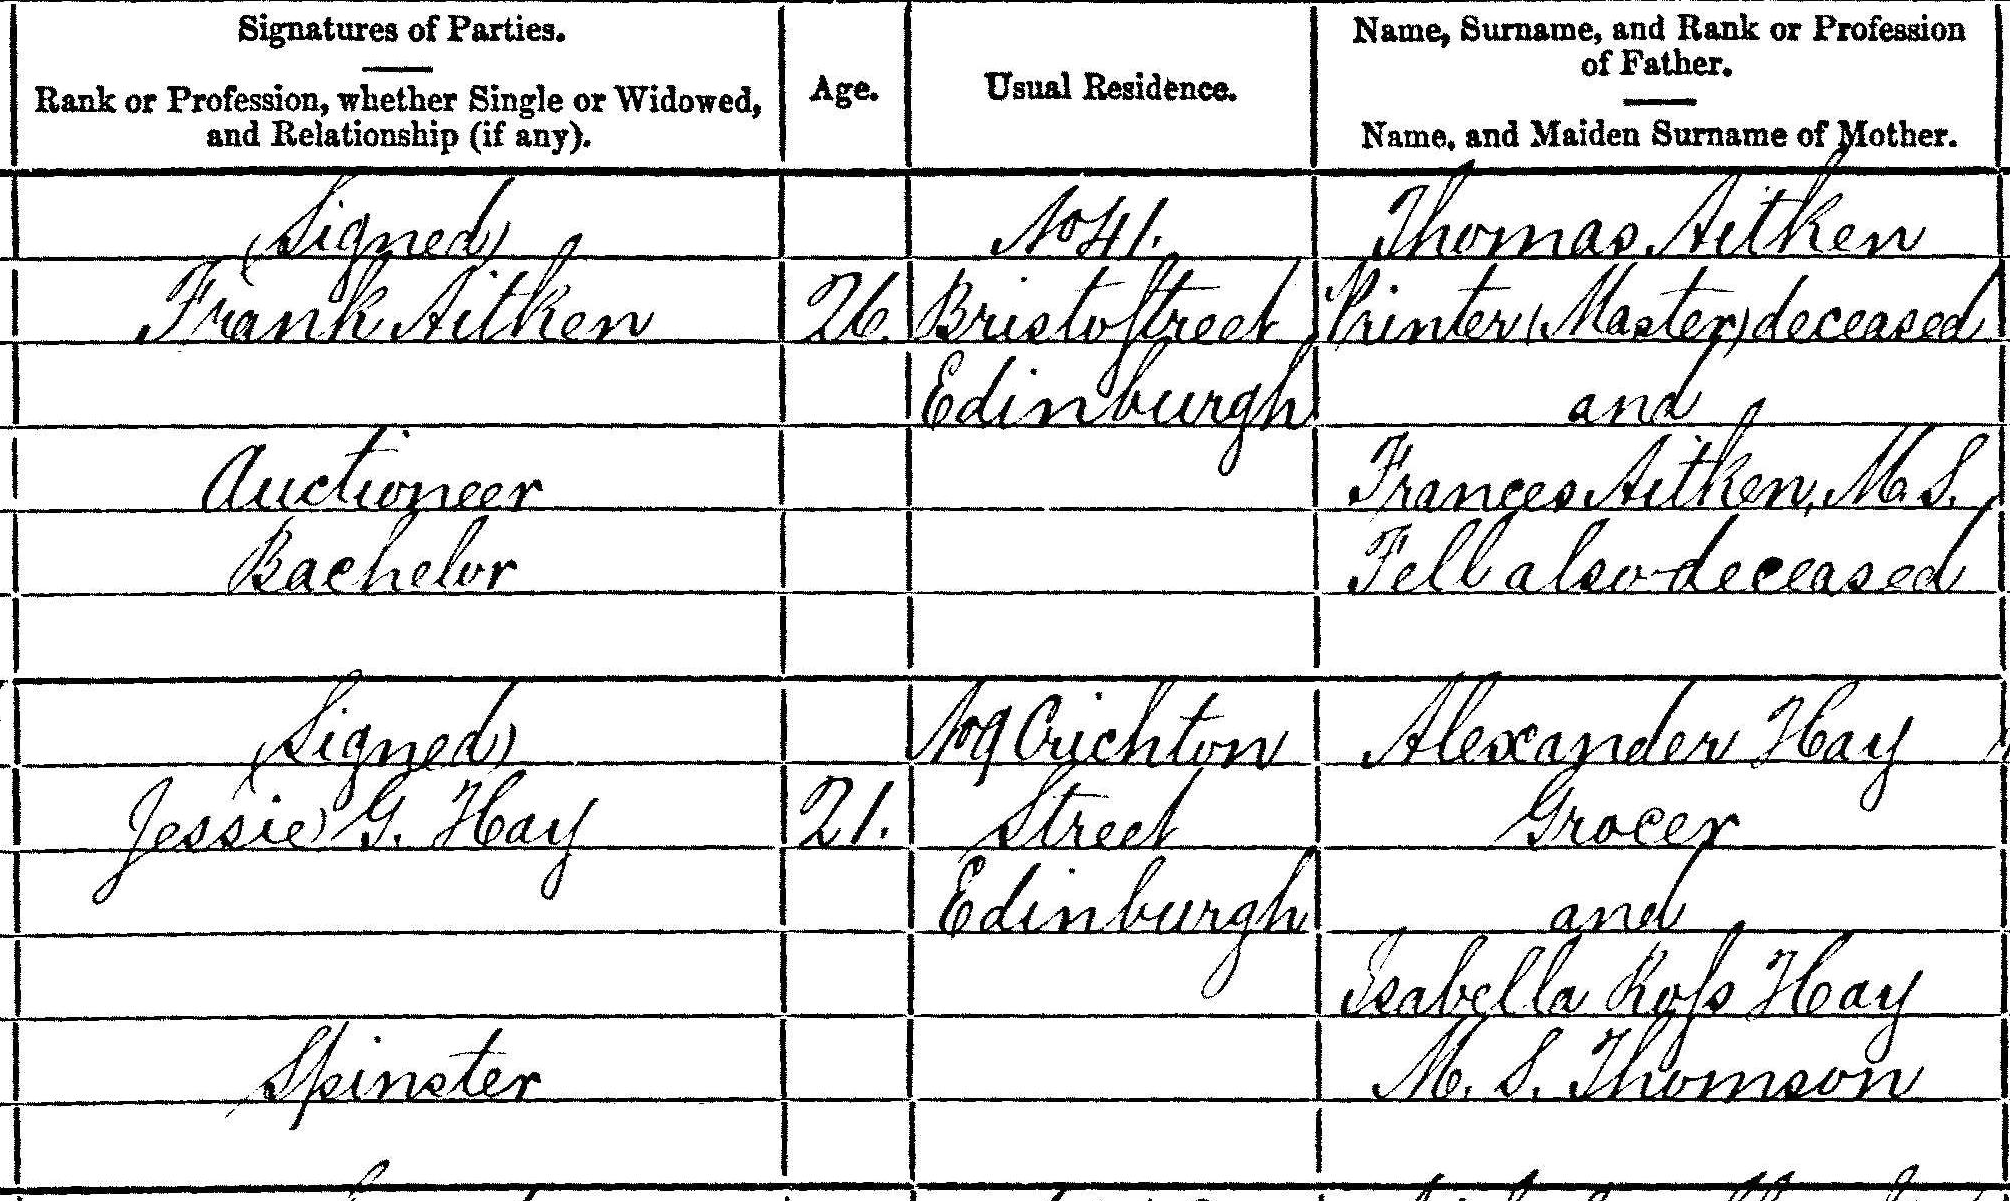 Signatures of Parties.
Rank or Profession, whether Single or Widowed,
and Relationship (if any).
Age.
Usual Residence.
Name, Surname, and Rank or Profession
of Father.
Name, and Maiden Surname of Mother.
(Signed)
Frank Aitken
Auctioneer
Bachelor
26.
No 41.
Bristo Street
Edinburgh
Thomas Aitken
Printer (Master) deceased
and
Frances Aitken, M.S.
Fell also deceased
(Signed)
Jessie G. Hay
Spinster
21.
No 9 Crichton
Street
Edinburgh
Alexander Hay
Grocer
and
Isabella Ross Hay
M. S. Thomson